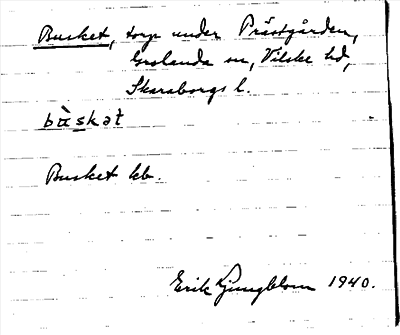 Busket, torp under Prästgården,
Grolanda sn, Vilske hd,
Skaraborgs l.
bùskət
Busket kb.
Erik Ljungblom 1940.